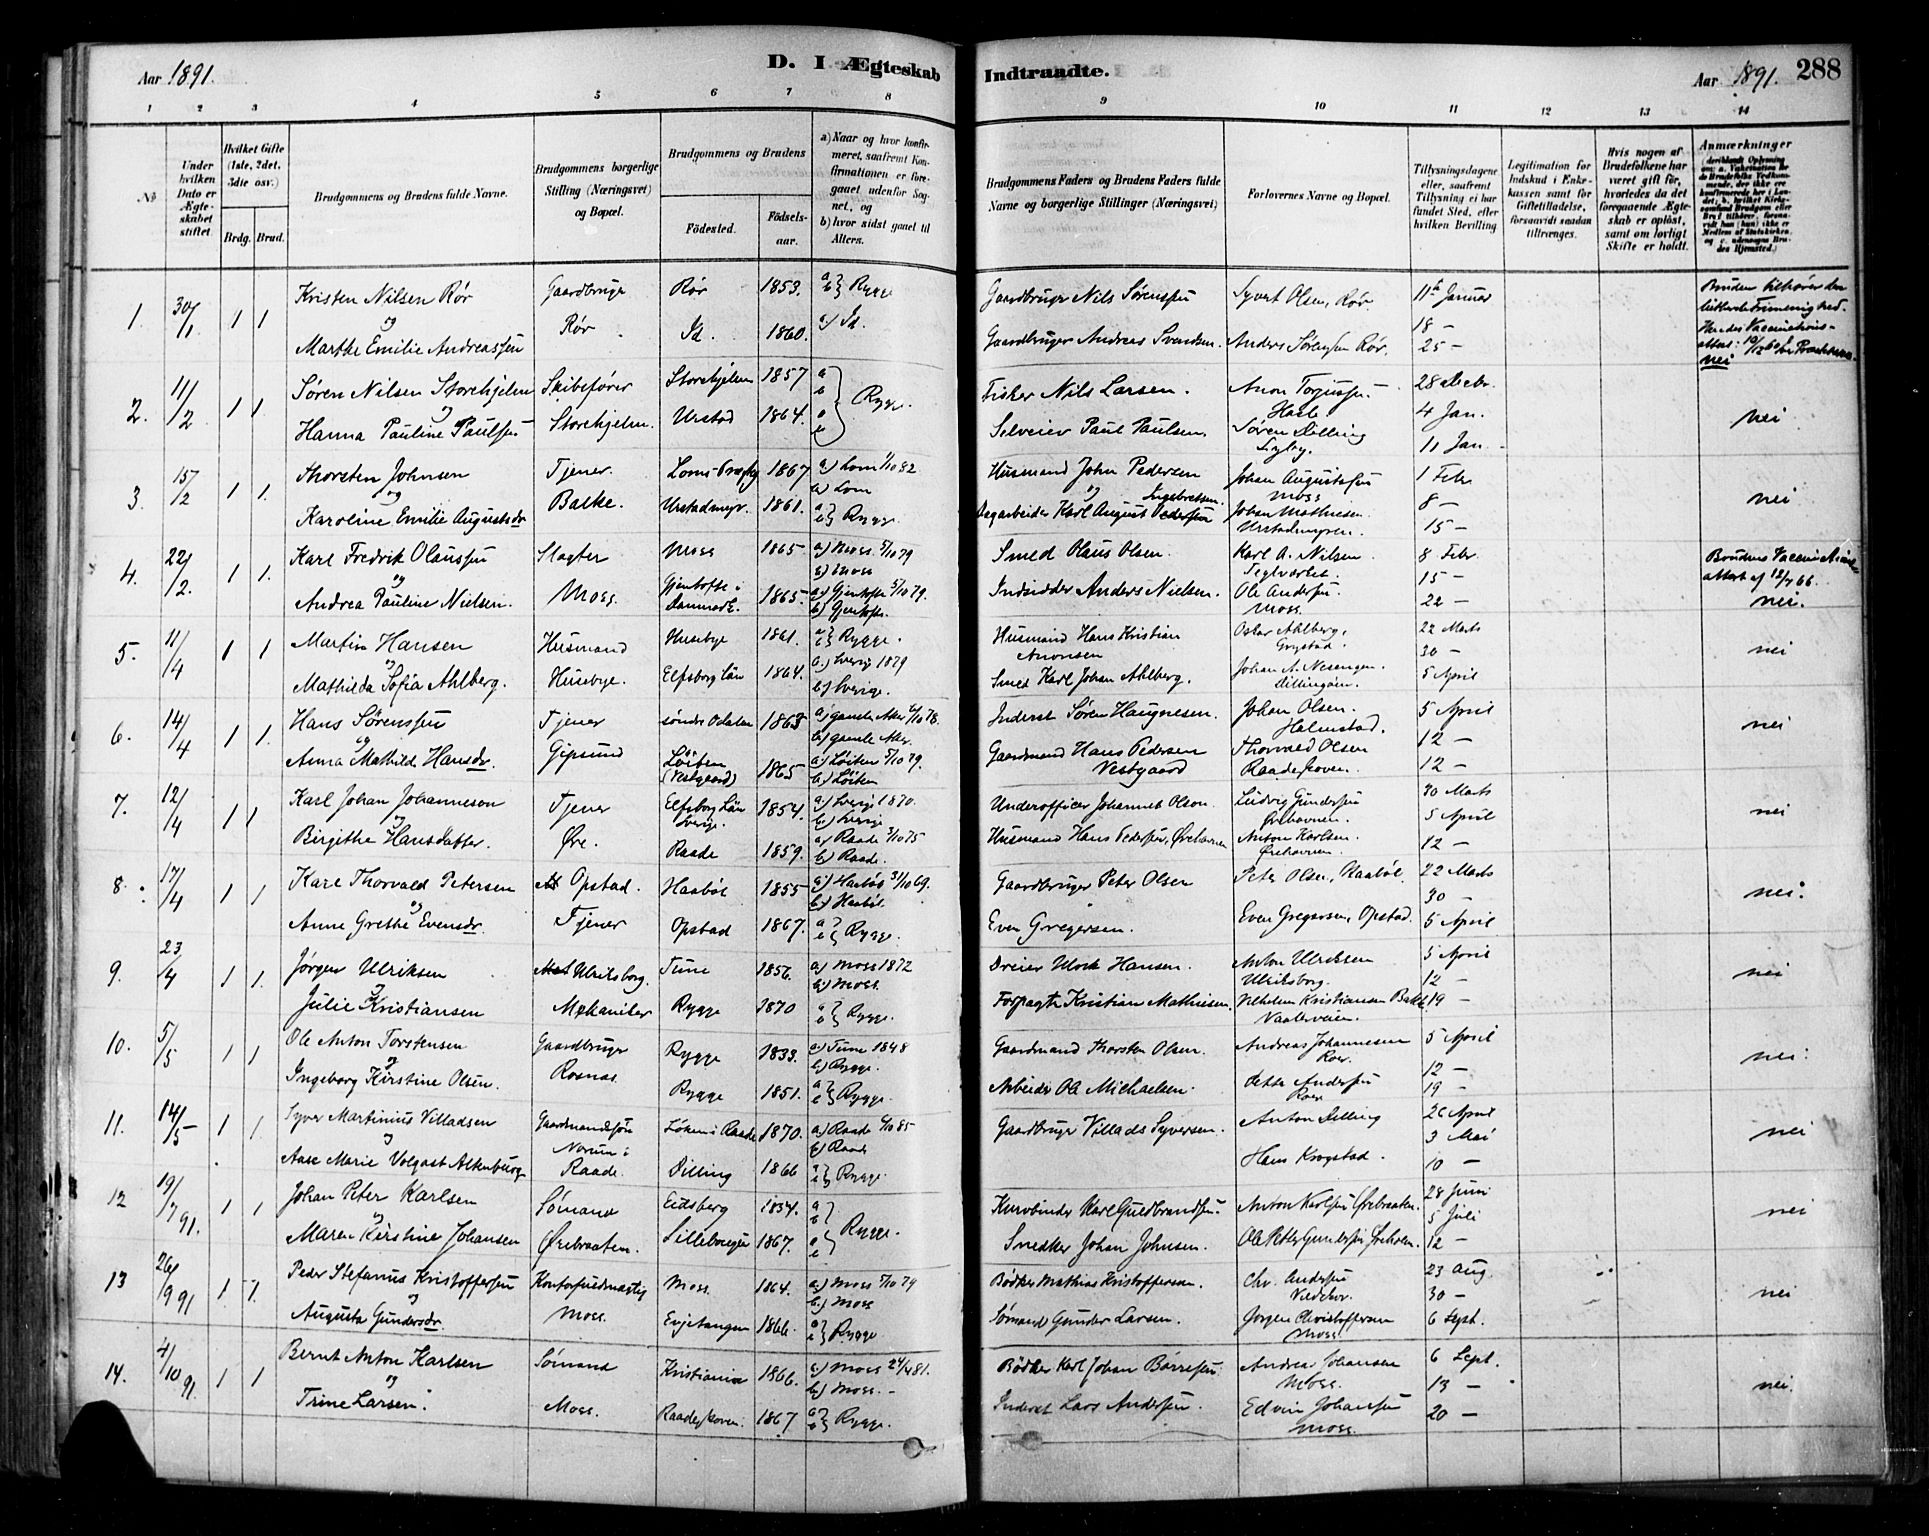 Aar 1891.
D. I Ægteskab
Indtraadte.
Aar 1891.
288
1 2 3 4 5 6 7 8
9 10 11 12 13 14
No
Under hvilken Dato er Ægteskabet stiftet
Hvilket Gifte (1ste, 2det, 3die osv.)
Brdg. Brud.
Brudgommens og Brudens fulde Navne.
Brudgommens borgerlige Stilling (Næringsvei) og Bopæl.
Brudgommens og Brudens
Fødested.
Fødselsaar.
a) Naar og hvor konfirmeret, saafremt Konfirmationen er foregaaet udenfor Sognet, og
b) hvor sidst gaaet til Alters.
Brudgommens Faders og Brudens Faders fulde Navne og borgerlige Stillinger (Næringsvei)
Forlovernes Navne og Bopæl.
Tillysningsdagene eller, saafremt Tillysning ei har fundet Sted, efter hvilken Bevilling
Legitimation for Indskud i Enkekassen samt for Giftetilladelse, forsaavidt saadan tiltrænges.
Hvis nogen af Brudefolkene har været gift før, hvorledes da det foregaaende Ægteskab er opløst, samt om lovligt Skifte er holdt.
Anmærkninger
1 30/1 1 1 Kristen Nilsen Rør Gaardbruger Rør 1853. a b} Rygge
og Rør
Marthe Emilie Andreassen Id. 1860. a) Id.
Gaardbruger Nils Sørensen Syvert Olsen, Rør. 11te Januar Bruden tilhører den
Gaardbruger Andreas Svendsen. Anders Sørensen Rør. 18 – 25 –
nei
2. 11/2 1 1 Søren Nilsen Storehjelen Skibsfører Storehjelen 1857 a b
og
Hanna Pauline Paulsen Storehjelen. Urstad 1864. a b} Rygge.
Fisker Nils Larsen. 28 Decbr.
Selveier Paul Paulsen, Søren Dilling 4 Jan. 11 Jan. nei
3. 15/2 1 1. Thorsten Johnsen Tjener Loms 1867 a) Lom 1/10 82
og b) Lom
Karoline Emilie Augustsdr Balke. Urstadmyr. 1861. a b} Rygge
Husmand John Pedersen Johan Augustsen 1 Febr
Moss
Ingebretsen.
Dagarbeider Karl August Pedersen Johan Mathisen 8 – nei
Urstadmyren. 15 –
4. 22/2. 1 1. Karl Fredrik Olaussen Slagter Moss 1865 a) Moss 5/10 79
og b) Moss
Andrea Pauline Nielsen. Moss. Gjentofte i Danmark. 1865. a) Gjentofte 5/10 79.
b) Gjentofte.
Smed Olaus Olsen. Karl A. Nilsen 8 Febr. Brudens Vaccinations-
Teglværket. 15 – attest af 12/7 66.
Indsidder Anders Nielsen. Ole Andersen 22 – nei.
Moss.
5. 11/4 1 1 Martin Hansen Husmand Husebye 1861. a b} Rygge.
og
Mathilda Sofia Ahlberg. Husebye. Elfsborg Län 1864. a) Sverig 1879
b) Sverige.
Husmand Hans Kristian Oskar Ahlberg, 22 Marts
Aronsen 30 – nei
Smed Karl Johan Ahlberg. Johan A. Nesengen. 5 April
6. 14/4 1 1. Hans Sørensen Tjener søndre Odalen 1863 a) gamle Aker 6/10 78.
og b) gamle Aker.
Anna Mathilde Hansdr. Gipsund Löiten (Vestgaard) 1865 a) Löiten 5/10 79.
b) Löiten
Inderst Søren Haugnesen. Johan Olsen. 5 April
Halmstad. nei
Gaardmand Hans Pedersen Thorvald Olsen 12 –
Vestgaard Raadeskoven. 12 –
7. 12/4 1 1 Karl Johan Johanneson Tjener Elfsborg Län Sverige. 1854. a) Sverige 1870.
og b) Sverige
Birgithe Hansdatter. Øre. Raade 1859. a) Raade 3/10 75
b) Raade.
Underofficer Johannes Olson. Ludvig Gundersen 30 Marts
Ørehavnen. 5 April nei
Husmand Hans Pedersen, Ørehavnen Anton Karlsen. 12 –
Ørehavnen.
8. 17/4 1 1 Karl Thorvald Petersen Opstad. Haabøl 1855 a) Haabøl 31/10 69.
og b) Haabøl.
Anne Grethe Evensdr. Tjener Opstad 1867. a b} Rygge.
Gaardbruger Peter Olsen Peter Olsen, Haabøl. 22 Marts
30 – nei.
Even Gregersen. Even Gregersen, Opstad. 5 April
9. 23/4 1 1. Jørgen Ulriksen Ulriksborg. Tune 1856. a) Moss 1872
og b) Moss.
Julie Kristiansen Mekaniker Rygge 1870 a b} Rygge.
Dreier Ulrik Hansen. Anton Ulriksen 5 April
Ulriksborg. 12 – nei
Forpagter Kristian Mathisen. Vilhelm Kristiansen Bakke 19 –
Vaalerveien.
10. 5/5 1 1 Ole Anton Torstensen Gaardbruger Rygge 1833. a) Tune 1848
og b) Rygge.
Ingeborg Kirstine Olsen. Rosnæs. Rygge 1851. a b} Rygge
Gaardmand Thorsten Olsen. Andreas Johannesen 5 April
Roer. 12 – nei.
Arbeider Ole Michaelsen. Andersen 19 –
Roer
11. 14/5 1 1 Syver Martinius Villadsen Gaardmandssøn Løken i Raade 1870. a) Raade 4/10 85
og Norum i b) Raade
Aase Marie Volgast Altenburg Raade. Dilling 1866 a b} Rygge.
Gaardbruger Villads Syversen. Anton Dilling 26 April
3 Mai nei
Hans Krogstad. 10 –
12 19/7 91. 1 1 Johan Peter Karlsen Sømand Eidsberg 1834. a b
og
Maren Kirstine Johansen Ørebraaten. 1867. a b} Rygge.
Kurvbinder Karl Guldbrandsen. Anton Karlsen Ørebraaten. 28 Juni
5 Juli nei
Snedker Johan Johnsen. Ole Petter Gundersen 12 –
13 26/9 91 1 1. Peder Stefanus Kristoffersen Moss. 1864. a) Moss 5/10 79
og b) Moss
Augusta Gundersdr. Moss. Evjetangen 1866. a b} Rygge.
Bødker Mathias Kristoffersen. Chr. Andersen 23 Aug.
30 – nei
Sømand Gunder Larsen. Jørgen Christoffersen 6 Sept.
Moss
14. 4/10 91. 1 1 Bernt Anton Karlsen Sømand Kristiania 1866. a) Moss 24/4 81.
og b) Moss. –
Trine Larsen. Moss. Raadeskoven. 1867 a b} Rygge.
Bødker Karl Johan Børresen Andreas Johansen 6 Sept.
Moss. 13 – nei.
Inderst Lars Andersen Edvin Johansen 20 –
Moss.